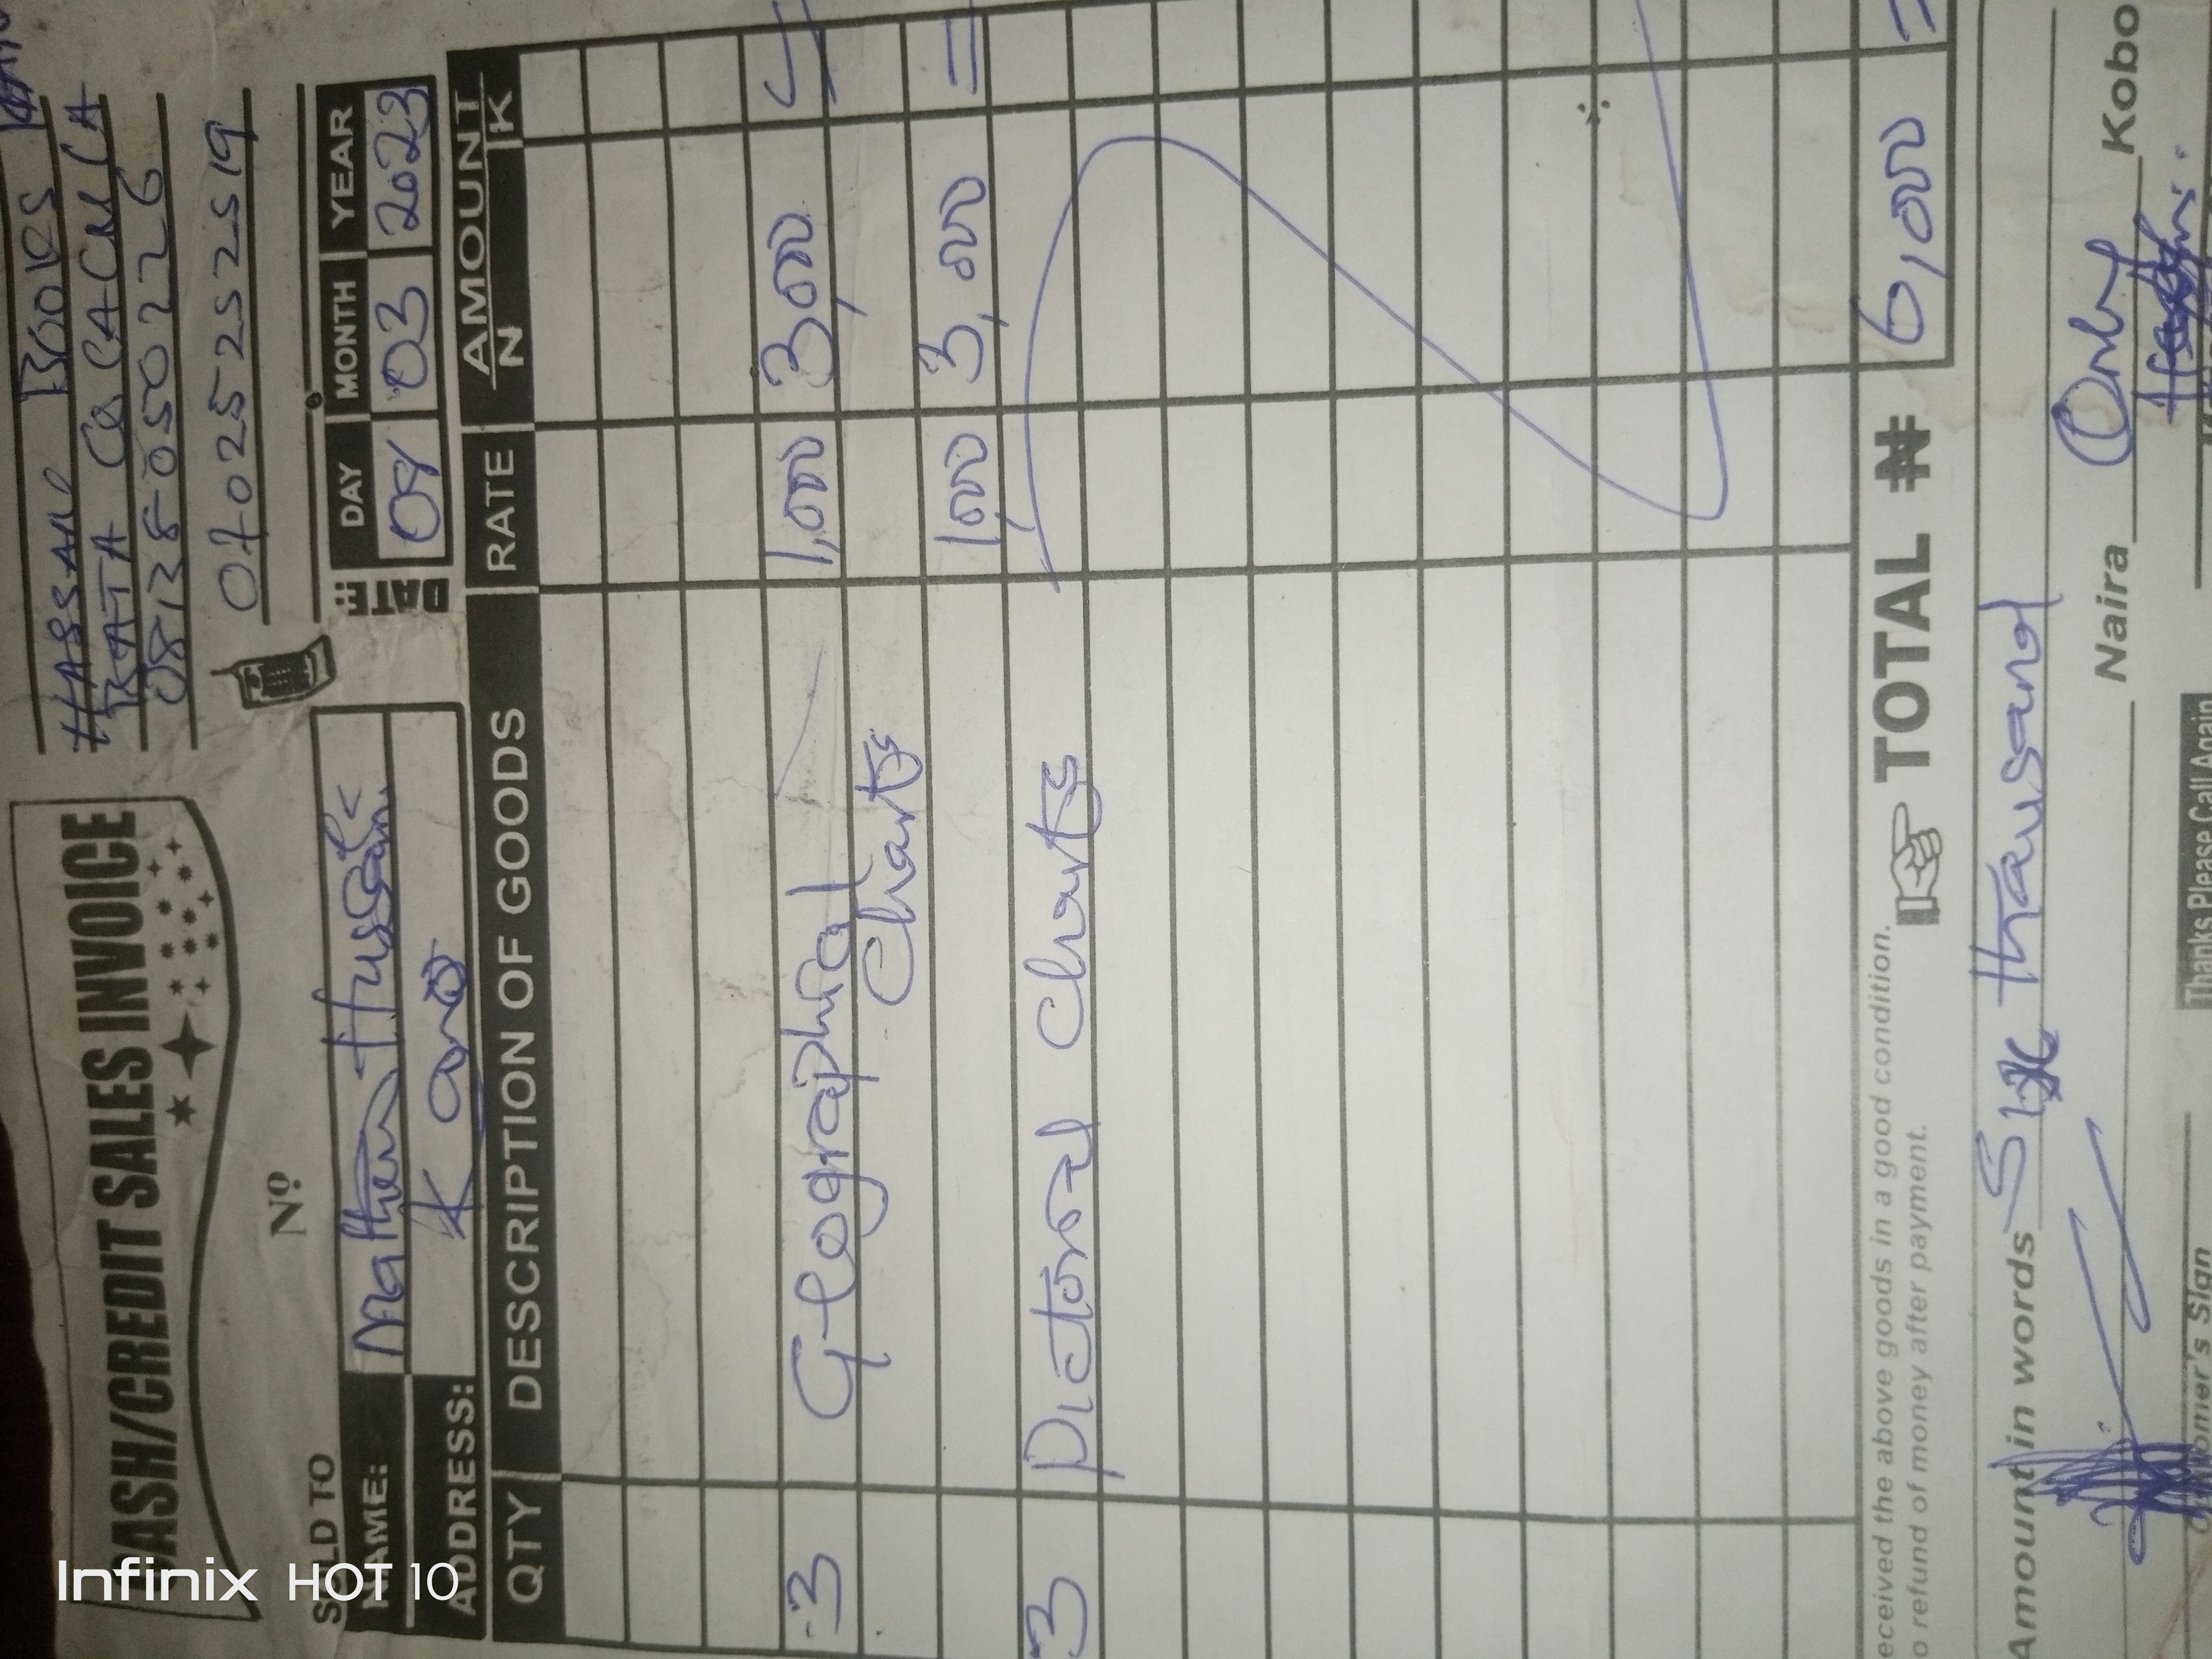 CASH/CREDIT SALES INVOICE
HASSAN BOOKS
KATA
08138050226
07025525219
Nº
SOLD TO
NAME: Matthew
ADDRESS: Kano
DATE: DAY MONTH YEAR
03 2023
QTY DESCRIPTION OF GOODS RATE AMOUNT
N K
3 Geographial 1,000 3,000 =
Charts
1,000 3,000 =
3 Pictorial Charts
eceived the above goods in a good condition.
o refund of money after payment.
TOTAL ₦ 6,000 =
Amount in words Six thausand
Naira Only Kobo
omer's Sign
Thanks Please Call Again
Infinix HOT 10